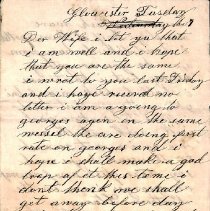 Gloucester Tuesday
Der Wife i let yu that
i am well and i hope
that you are the same
i wrot to you last Friday
and i have recevd no
letter i am a going to
georges agen in the same
vessel the are doing first
rate on georges and i
hope i shall make a god
trip of it this time i
dont think we shall
get away before day